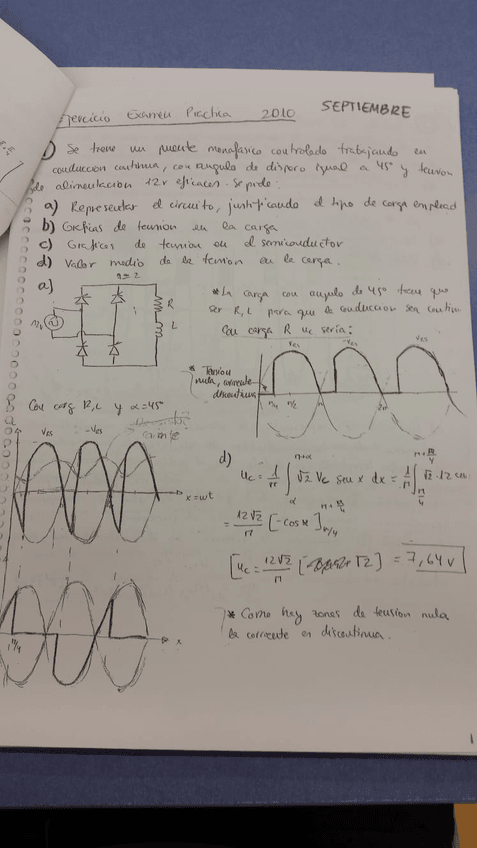 Ejercicio Examen Practica 2010 SEPTIEMBRE
Se tiene un puente monofasico controlado trabajando en
conduccion continua, con angulo de disparo igual a 45º y tension
de alimentacion 12v eficaces. Se pide:
a) Representar el circuito, justificando el tipo de carga emplead
b) Graficas de tension en la carga
c) Graficas de tension en el semiconductor
d) Valor medio de la tension en la carga.
a)
n=2
R
L
* La carga con angulo de 45º tiene que
ser R, L para que la conduccion sea continu
Con carga R uc seria:
VRS
-VRS
VRS
* Tension
nula, corriente
discontinua
π/4 π/2 π 2π
Con carg R,L y α=45º
VRS -VRS
x=wt
d)
uc = 1/π ∫ α π+α √2 Vc sen x dx = 1/π ∫ π/4 π+π/4 √2·12 sen
= 12√2/π [-cosx] π/4 π+π/4
[uc = 12√2/π [ √2] = 7,64 v
* Como hay zonas de tension nula
la corriente es discontinua.
π/4
x
1